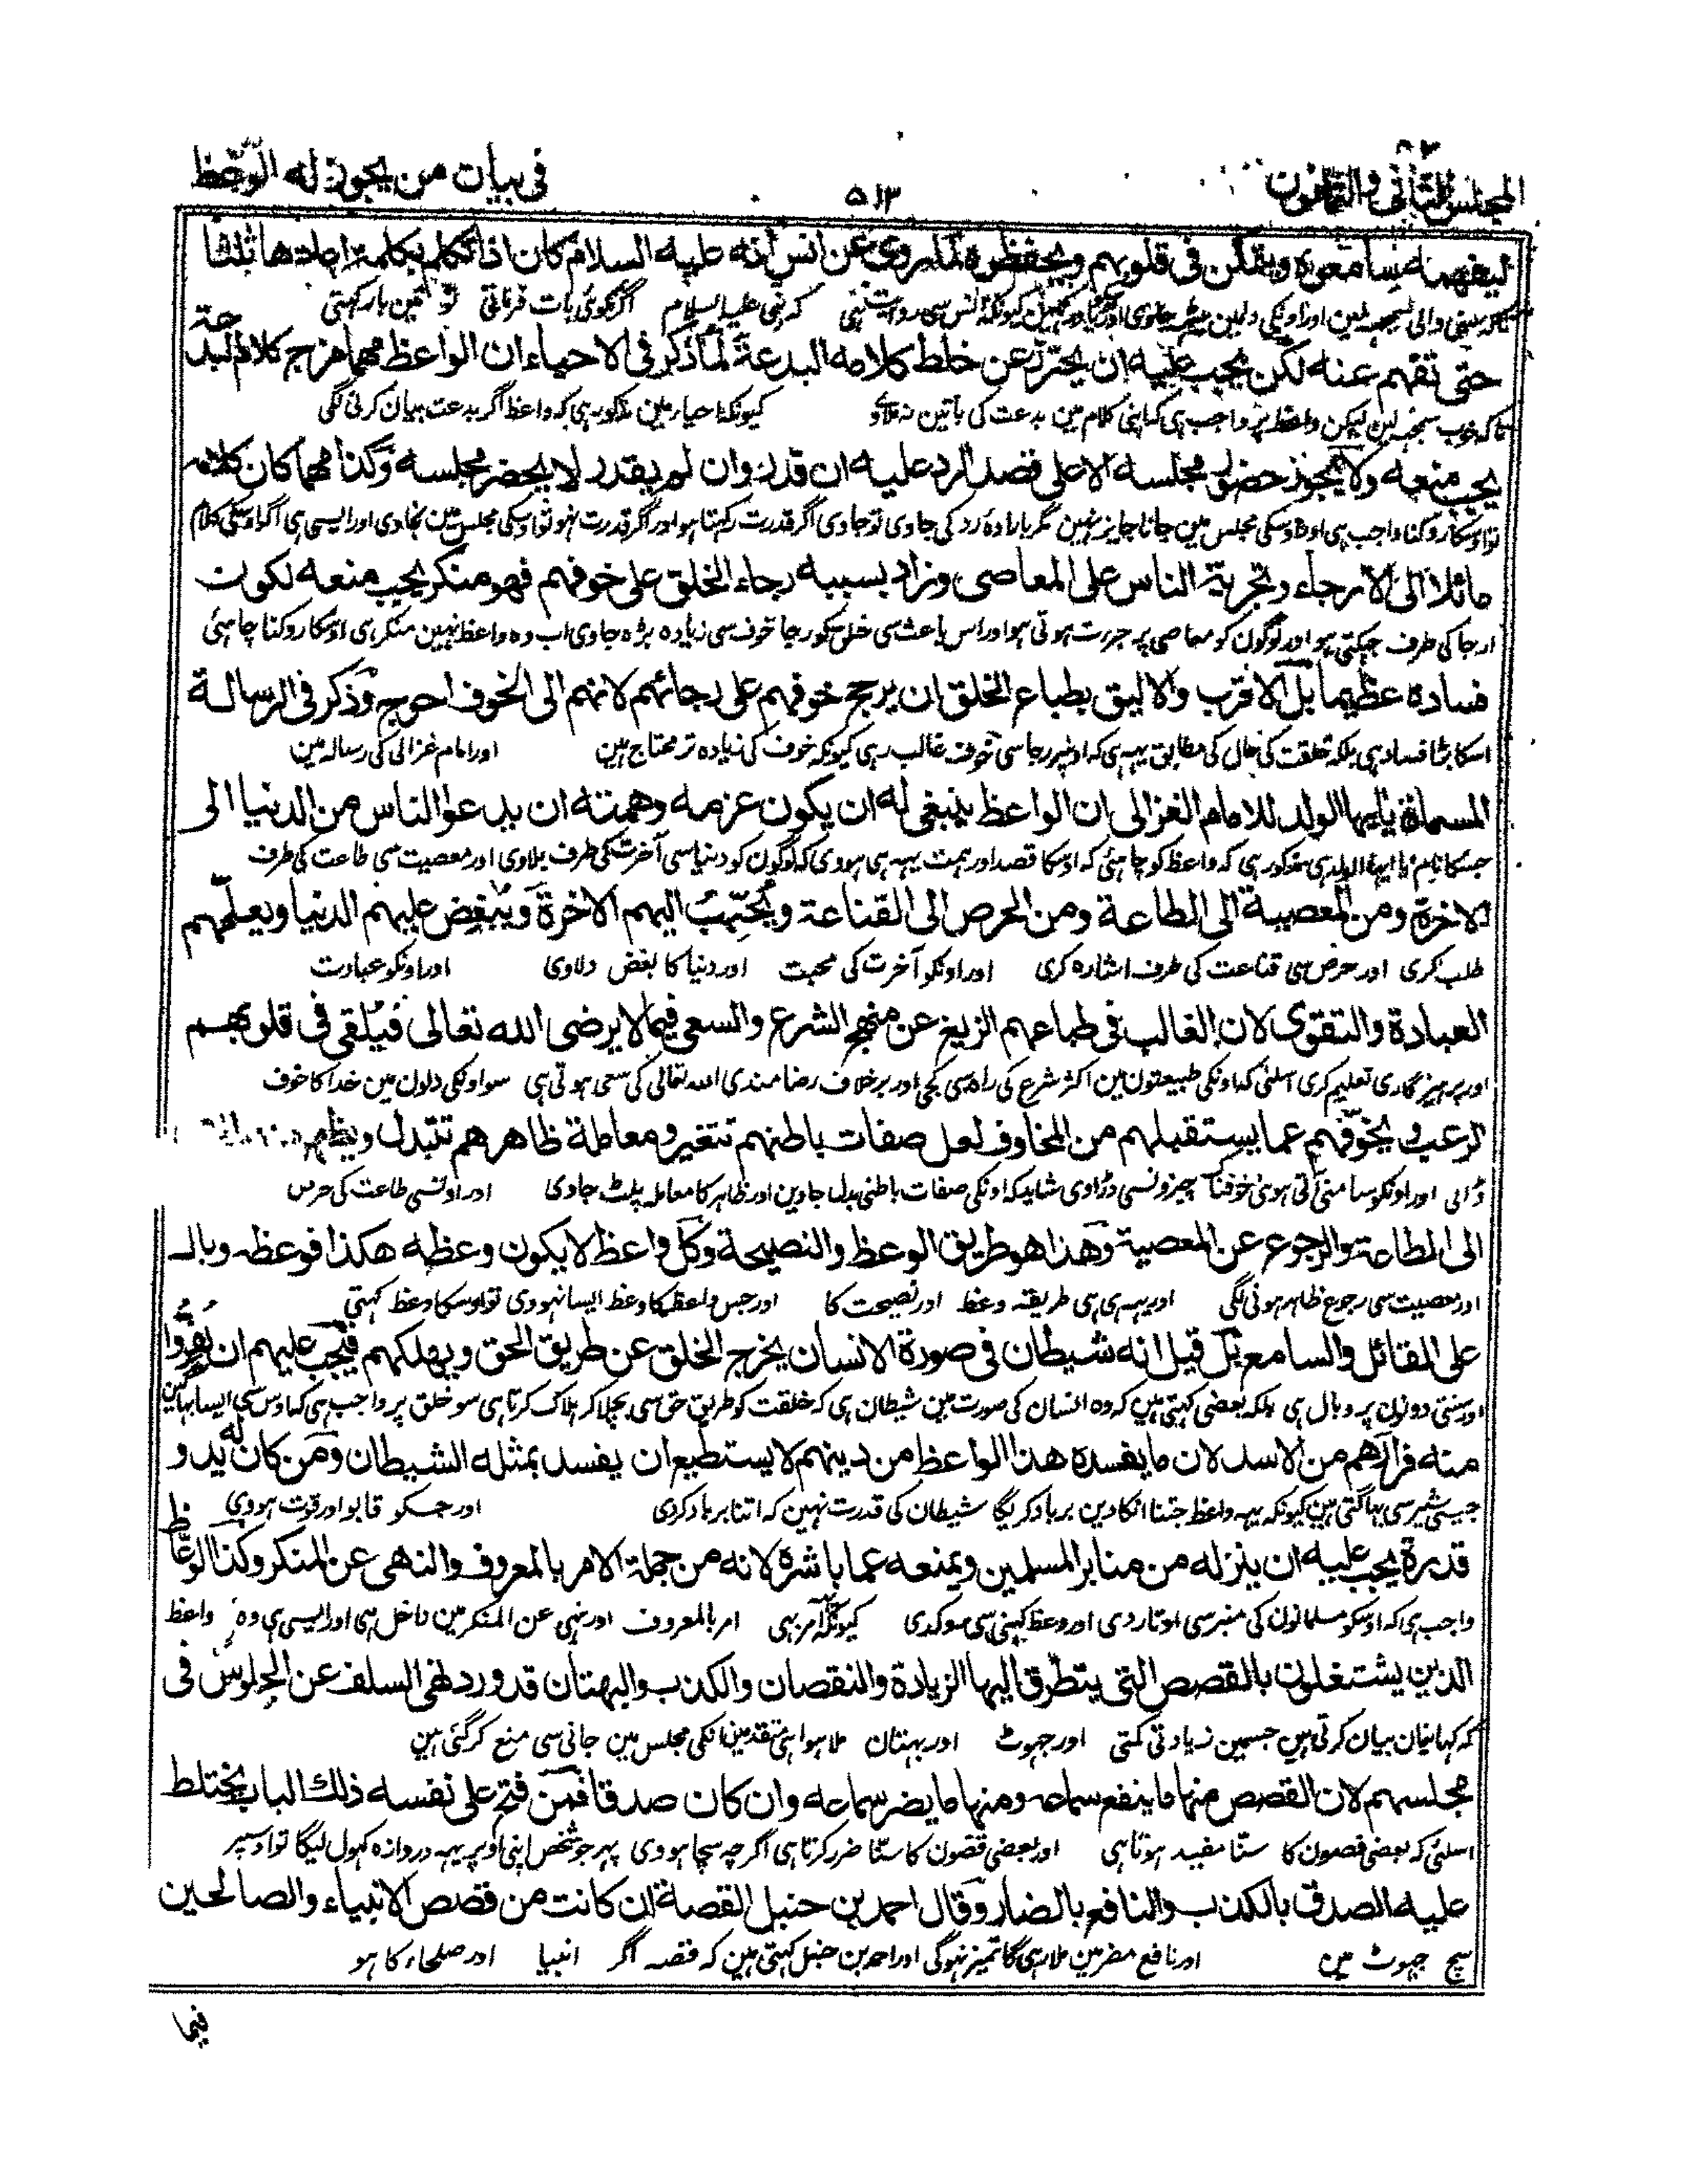 المجلس الثاني والثمانون
۵۱۳
في بيان من يجوز له الوعظ
ليفهمه سامعوه ويتمكن في قلوبهم ويحفظوه لما روي عن انس انه عليه السلام كان اذا تكلم بكلمة اعادها ثلثا
سننی والی سمجہہ لین اور اونکی دلین کیونکہ انس سی روایت ہی کہ نبی علیہ السلام اگر کوئی بات فرماتی تو تین بار کہتی
حتى تفهم عنه لكن يجب عليه ان يحترز عن خلط كلامه البدعة لما ذكر في الاحياء ان الواعظ مهما مزج كلامه البدعة
تاکہ خوب سمجہہ لین لیکن واعظ پر واجب ہی کہ اپنی کلام مین بدعت کی باتین نہ ملاوی کیونکہ احیاء مین مذکور ہی کہ واعظ اگر بدعت بیان کرنی لگی
يجب منعه ولا يجوز حضور مجلسه الا على قصد الرد عليه ان قدر وان لم يقدر لا يحضر مجلسه وكذا مهما كان كلامه
تو اوسکا روکنا واجب ہی اور اوسکی مجلس مین جانا جایز نہین مگر بارادہ رد کی جاوی تو جاوی اگر قدرت رکہتا ہو اور اگر قدرت نہو تو اوسکی مجلس مین نجاوی اور ایسی ہی اگر اوسکی کلام
مائلا الى الارجاء وتجرية الناس على المعاصي وزاد بسببه رجاء الخلق على خوفهم فهو منكر يجب منعه لكون
ارجا کی طرف جہکتی ہو اور لوگون کو معاصی پر جرءت ہوتی ہو اور اس باعث سی خلق کو رجا خوف سی زیادہ بڑہ جاوی اب وہ واعظ نہین منکر ہی اوسکا روکنا چاہئی
فساده عظيما بل الاقرب والاليق بطباع الخلق ان يرجح خوفهم على رجائهم لانهم الى الخوف احوج وذكر في الرسالة
اسکا بڑا فساد ہی بلکہ خلقت کی حال کی مطابق یہہ ہی کہ اونپر رجا سی خوف غالب رہی کیونکہ خوف کی زیادہ تر محتاج ہین اور امام غزالی کی رسالہ مین
المسماة بايها الولد للامام الغزالي ان الواعظ ينبغي له ان يكون عزمه وهمته ان يدعو الناس من الدنيا الى
جسکا نام یا ایہا الولد ہی مذکور ہی کہ واعظ کو چاہئی کہ اوسکا قصد اور ہمت یہہ ہی ہووی کہ لوگون کو دنیا سی آخرت کی طرف بلاوی اور معصیت سی طاعت کی طرف
الاخرة ومن المعصية الى الطاعة ومن الحرص الى القناعة ويحبب اليهم الاخرة ويبغض عليهم الدنيا ويعلمهم
طلب کری اور حرص سی قناعت کی طرف اشارہ کری اور اونکو آخرت کی محبت اور دنیا کا بغض دلاوی اور اونکو عبادت
العبادة والتقوى لان الغالب في طباعهم الزيغ عن منهج الشرع والسعي فيما لا يرضى الله تعالى فيلقي في قلوبهم
اور پرہیزگاری تعلیم کری اسلئی کہ اونکی طبیعتون مین اکثر شرع کی راہ سی کجی اور برخلاف رضامندی اللہ تعالی کی سعی ہوتی ہی سو اونکی دلون مین خدا کا خوف
الرعب ويخوفهم عما يستقبلهم من المخاوف لعل صفات باطنهم تتغير ومعاملة ظاهرهم تتبدل ويظهر
ڈالی اور اونکو سامنی آتی ہوئی خوفناک چیزونسی ڈراوی شاید کہ اونکی صفات باطنی بدل جاوین اور ظاہر کا معاملہ پلٹ جاوی اور اونسی طاعت کی حرص
الى الطاعة والرجوع عن المعصية وهذا هو طريق الوعظ والنصيحة وكل واعظ لا يكون وعظه هكذا فوعظه وبال
اور معصیت سی رجوع ظاہر ہونی لگی اور یہہ ہی ہی طریقہ وعظ اور نصیحت کا اور جس واعظ کا وعظ ایسا نہووی تو اوسکا وعظ کہتی
على القائل والسامع بل قيل انه شيطان في صورة الانسان يخرج الخلق عن طريق الحق ويهلكهم فيجب عليهم ان يفروا
اور سنتی دونون پر وبال ہی بلکہ بعضی کہتی ہین کہ وہ انسان کی صورت مین شیطان ہی کہ خلقت کو طریق حق سی بچلا کر ہلاک کرتا ہی سو خلق پر واجب ہی کہ اوس سی ایسا بہاگین
منه فرارهم من الاسد لان ما يفسده هذا الواعظ من دينهم لا يستطيع ان يفسد بمثله الشيطان ومن كان له يد و
جیسی شیر سی بہاگتی ہین کیونکہ یہہ واعظ جتنا انکا دین برباد کریگا شیطان کی قدرت نہین کہ اتنا برباد کردی اور جسکو قابو اور قوت ہووی
قدرة يجب عليه ان ينزله من منابر المسلمين ويمنعه عما باشره لانه من جملة الامر بالمعروف والنهي عن المنكر وكذا الوعاظ
واجب ہی کہ اوسکو مسلمانون کی منبر سی اوتار دی اور وعظ کہنی سی روکدی کیونکہ امر بالمعروف اور نہی عن المنکر مین داخل ہی اور ایسی ہی وہ واعظ
الذين يشتغلون بالقصص التي يتطرق اليها الزيادة والنقصان والكذب والبهتان قد ورد نهي السلف عن الجلوس في
کہ کہانیان بیان کرتی ہین جسمین زیادتی کمتی اور جہوٹ اور بہتان ملا ہوا ہی متقدمین انکی مجلس مین جانی سی منع کرگئی ہین
مجلسهم لان القصص منها ما ينفع سماعه ومنها ما يضر سماعه وان كان صدقا فمن فتح على نفسه ذلك الباب يختلط
اسلئی کہ بعضی قصون کا سننا مفید ہوتا ہی اور بعضی قصون کا سننا ضرر کرتا ہی اگرچہ سچا ہووی پہر جو شخص اپنی اوپر یہہ دروازہ کہول لیگا تو اوسپر
عليه الصدق بالكذب والنافع بالضار وقال احمد بن حنبل القصة ان كانت من قصص الانبياء والصالحين
سچ جہوٹ مین اور نافع مضر مین ملا رہی گا تمیز نہوگی اور احمد بن حنبل کہتی ہین کہ قصہ اگر انبیا اور صلحاء کا ہو
فيما